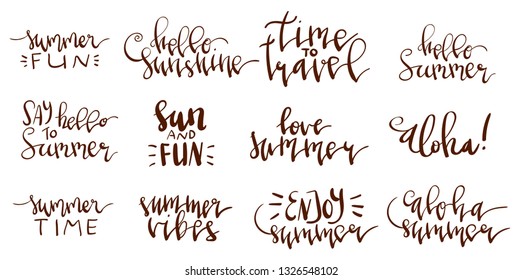 summer
FUN
hello
Sunshine
Time
TO
travel
hello
Summer
SAY hello
TO
Summer
Sun
AND
FUN
love
summer
aloha!
summer
TIME
summer
vibes
ENJOY
summer
aloha
summer
www.shutterstock.com · 1326548102